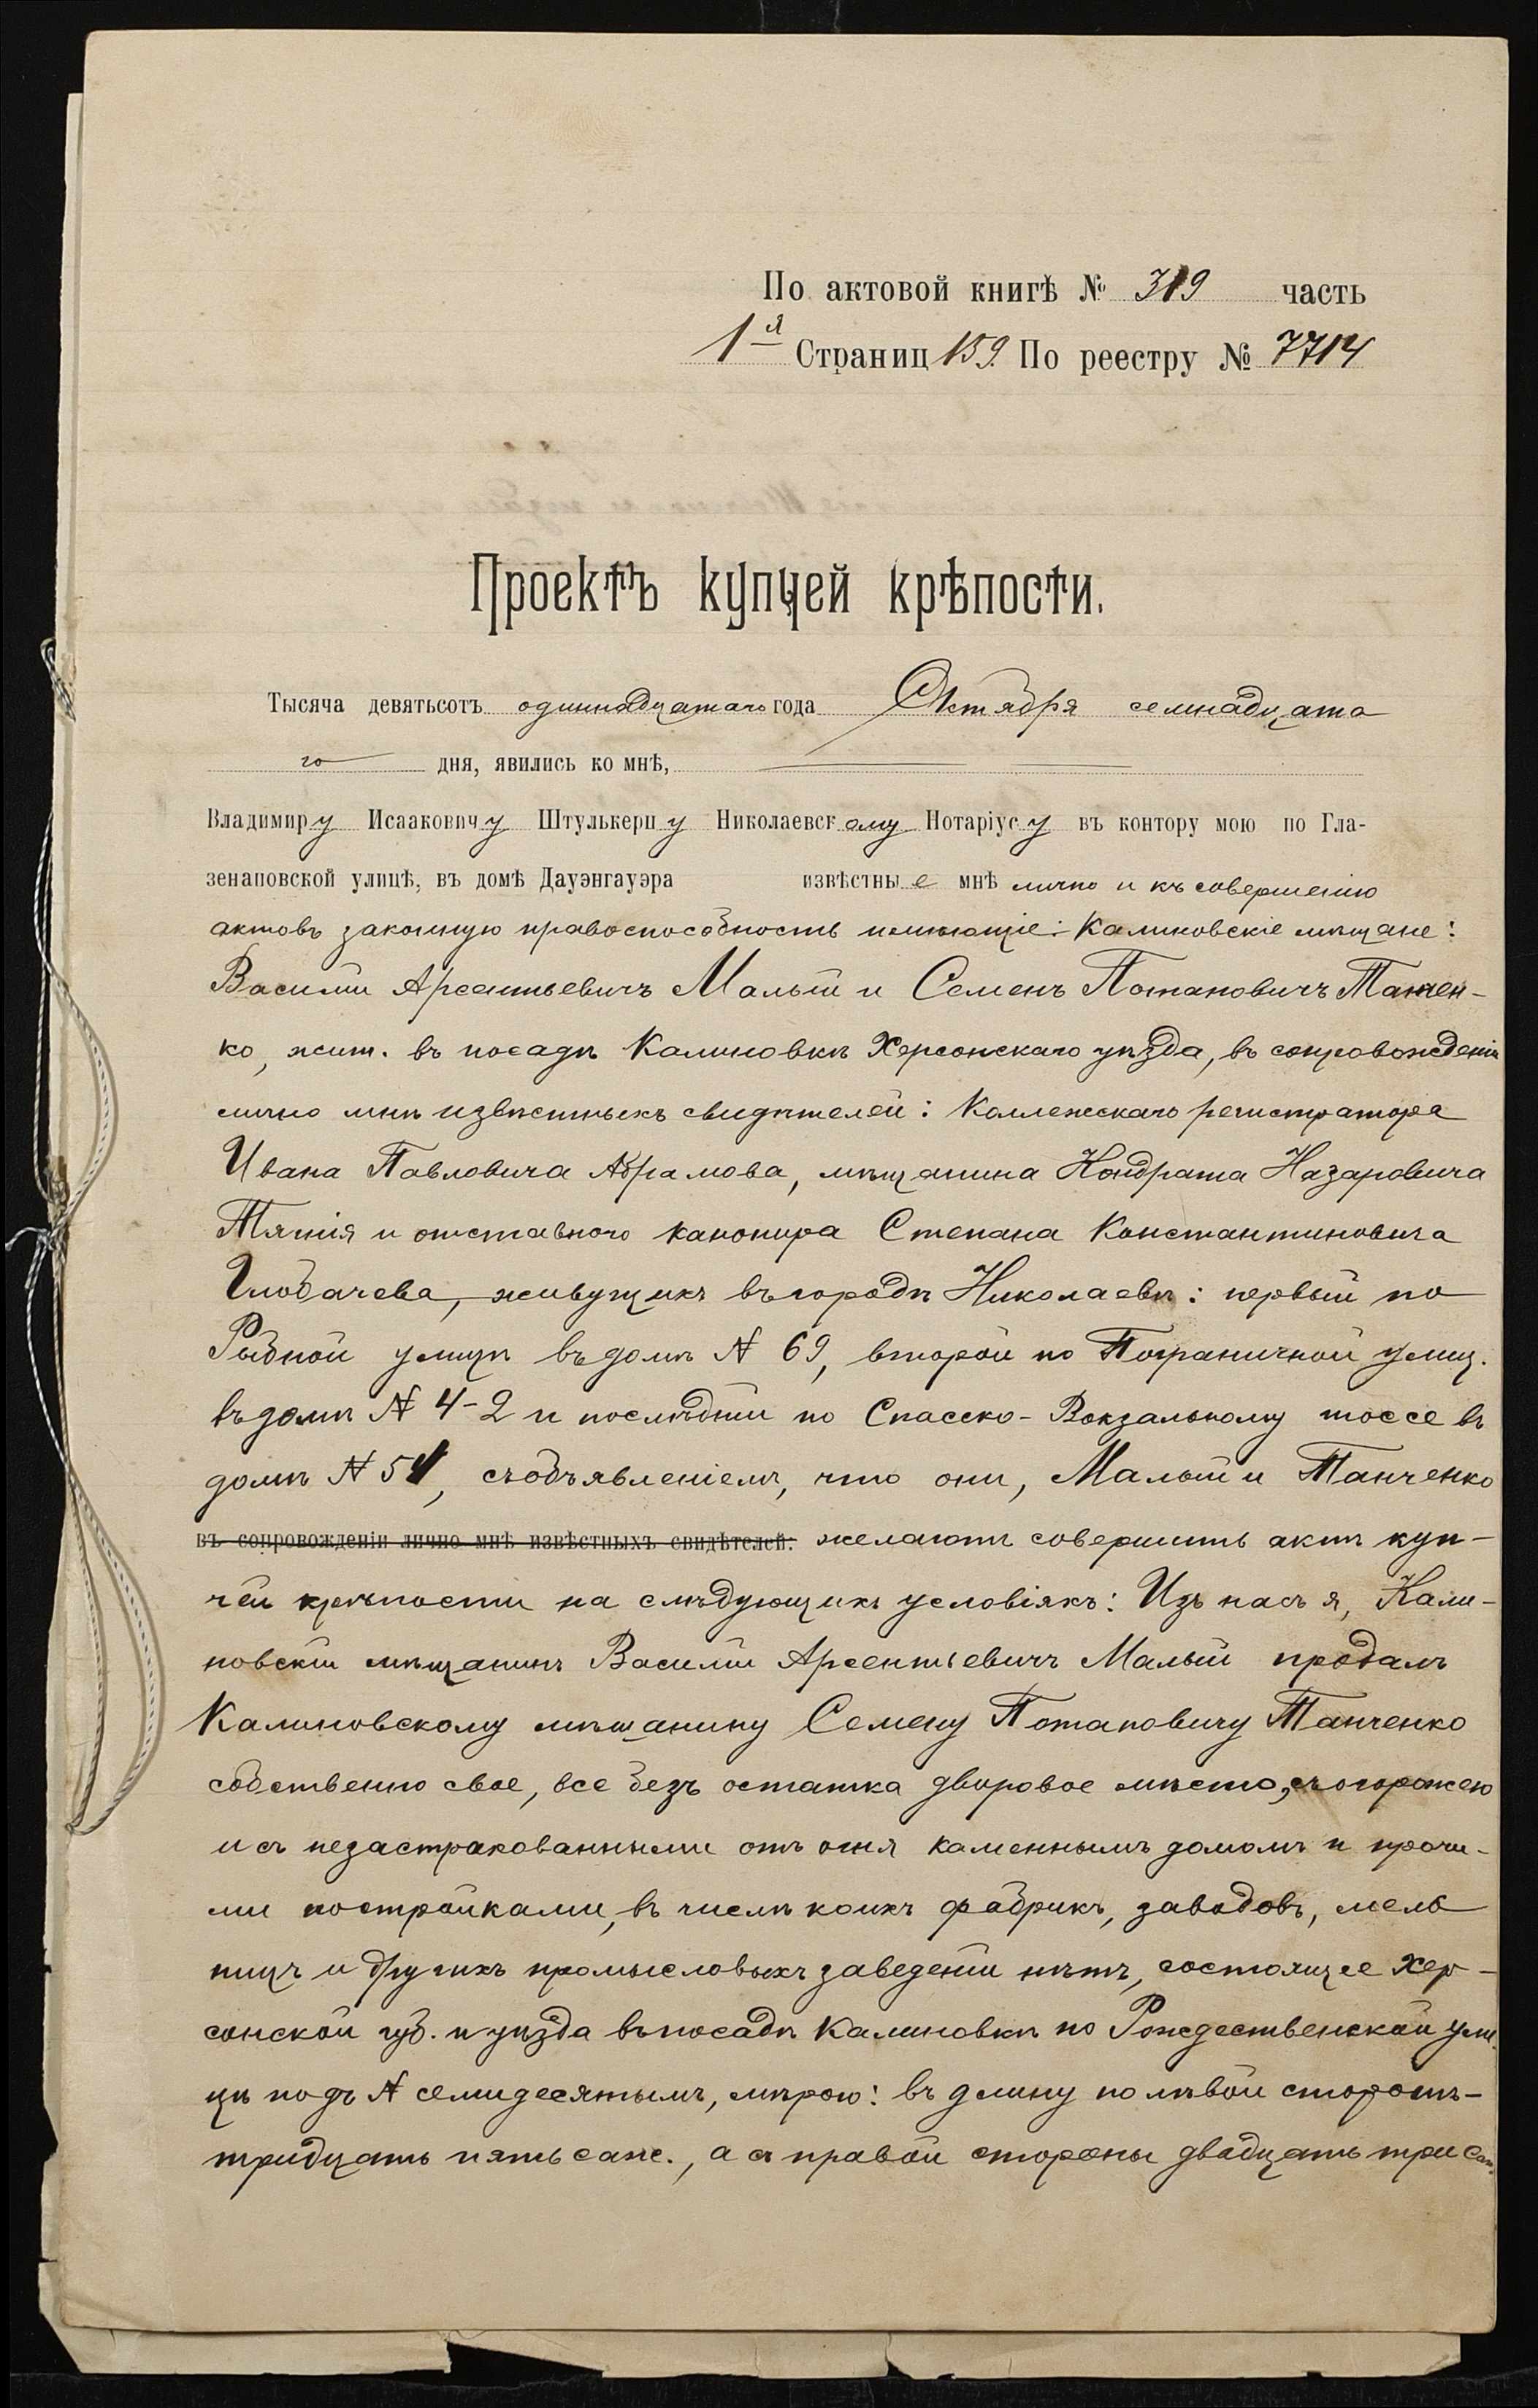 По актовой книгѣ № 319 часть
1я Страниц 159. По реестру № 7714
Проектъ купчей крѣпости.
Тысяча девятьсотъ одиннадцатаго года Октября семнадцата
го дня, явились ко мнѣ,
Владимиру Исааковичу Штулькерцу Николаевскому Нотаріусу въ контору мою по Гла-
зенаповской улицѣ, въ домѣ Дауэнгауэра извѣстные мнѣ лично и къ совершенію
актовъ законную правоспособность имѣющіе: Калиновскіе мѣщане:
Василій Арсентьевичъ Малый и Семенъ Потаповичъ Танчен-
ко, жит. въ посадѣ Калиновкѣ Херсонскаго уѣзда, въ сопровожденіи
лично мнѣ извѣстныхъ свидѣтелей: Коллежскаго регистратора
Ивана Павловича Абрамова, мѣщанина Кондрата Назаровича
и отставного канонира Степана Константиновича
живущихъ въ городѣ Николаевѣ: первый по
Рыбной улицѣ въ домѣ № 69, второй по Пограничной улиц.
въ домѣ № 4-2 и послѣдній по Спасско-Вокзальному шоссе въ
домѣ № 51, съ объявленіемъ, что они, Малый и Танченко
въ сопровожденіи лично мнѣ извѣстныхъ свидѣтелей: желаютъ совершить актъ куп-
чей крѣпости на слѣдующихъ условіяхъ: Изъ насъ я, Кали-
новскій мѣщанинъ Василій Арсентьевичъ Малый продалъ
Калиновскому мѣщанину Семену Потаповичу Танченко
собственно свое, все безъ остатка дворовое мѣсто, съ огорожею
и съ незастрахованными отъ огня каменнымъ домомъ и прочи-
ми постройками, въ числѣ коихъ фабрикъ, заводовъ, мель
ницъ и другихъ промысловыхъ заведеній нѣтъ, состоящее Хер-
сонской губ. и уѣзда въ посадѣ Калиновкѣ по Рождественской ули
цѣ подъ № семидесятымъ, мѣрою: въ длину по лѣвой сторонѣ-
тридцать пять саж., а съ правой стороны двадцать три саж.